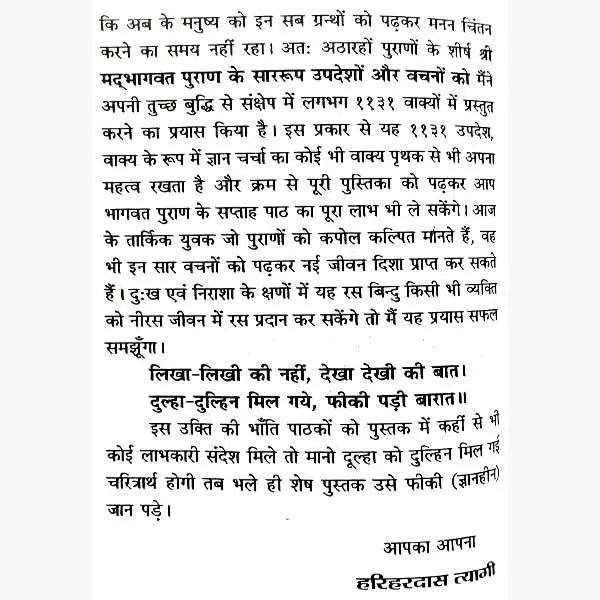 कि अब के मनुष्य को इन सब ग्रन्थों को पढ़कर मनन चिंतन
करने का समय नहीं रहा। अतः अठारहों पुराणों के शीर्ष श्री
मद्भागवत पुराण के साररूप उपदेशों और वचनों को मैंने
अपनी तुच्छ बुद्धि से संक्षेप में लगभग ११३१ वाक्यों में प्रस्तुत
करने का प्रयास किया है। इस प्रकार से यह ११३१ उपदेश,
वाक्य के रूप में ज्ञान चर्चा का कोई भी वाक्य पृथक से भी अपना
महत्व रखता है और क्रम से पूरी पुस्तिका को पढ़कर आप
भागवत पुराण के सप्ताह पाठ का पूरा लाभ भी ले सकेंगे। आज
के तार्किक युवक जो पुराणों को कपोल कल्पित मानते हैं, वह
भी इन सार वचनों को पढ़कर नई जीवन दिशा प्राप्त कर सकते
हैं। दुःख एवं निराशा के क्षणों में यह रस बिन्दु किसी भी व्यक्ति
को नीरस जीवन में रस प्रदान कर सकेंगे तो मैं यह प्रयास सफल
समझूँगा।
लिखा-लिखी की नहीं, देखा देखी की बात।
दुल्हा-दुल्हिन मिल गये, फीकी पड़ी बारात॥
इस उक्ति की भाँति पाठकों को पुस्तक में कहीं से भी
कोई लाभकारी संदेश मिले तो मानो दूल्हा को दुल्हिन मिल गई
चरित्रार्थ होगी तब भले ही शेष पुस्तक उसे फीकी (ज्ञानहीन)
जान पड़े।
आपका आपना
हरिहरदास त्यागी